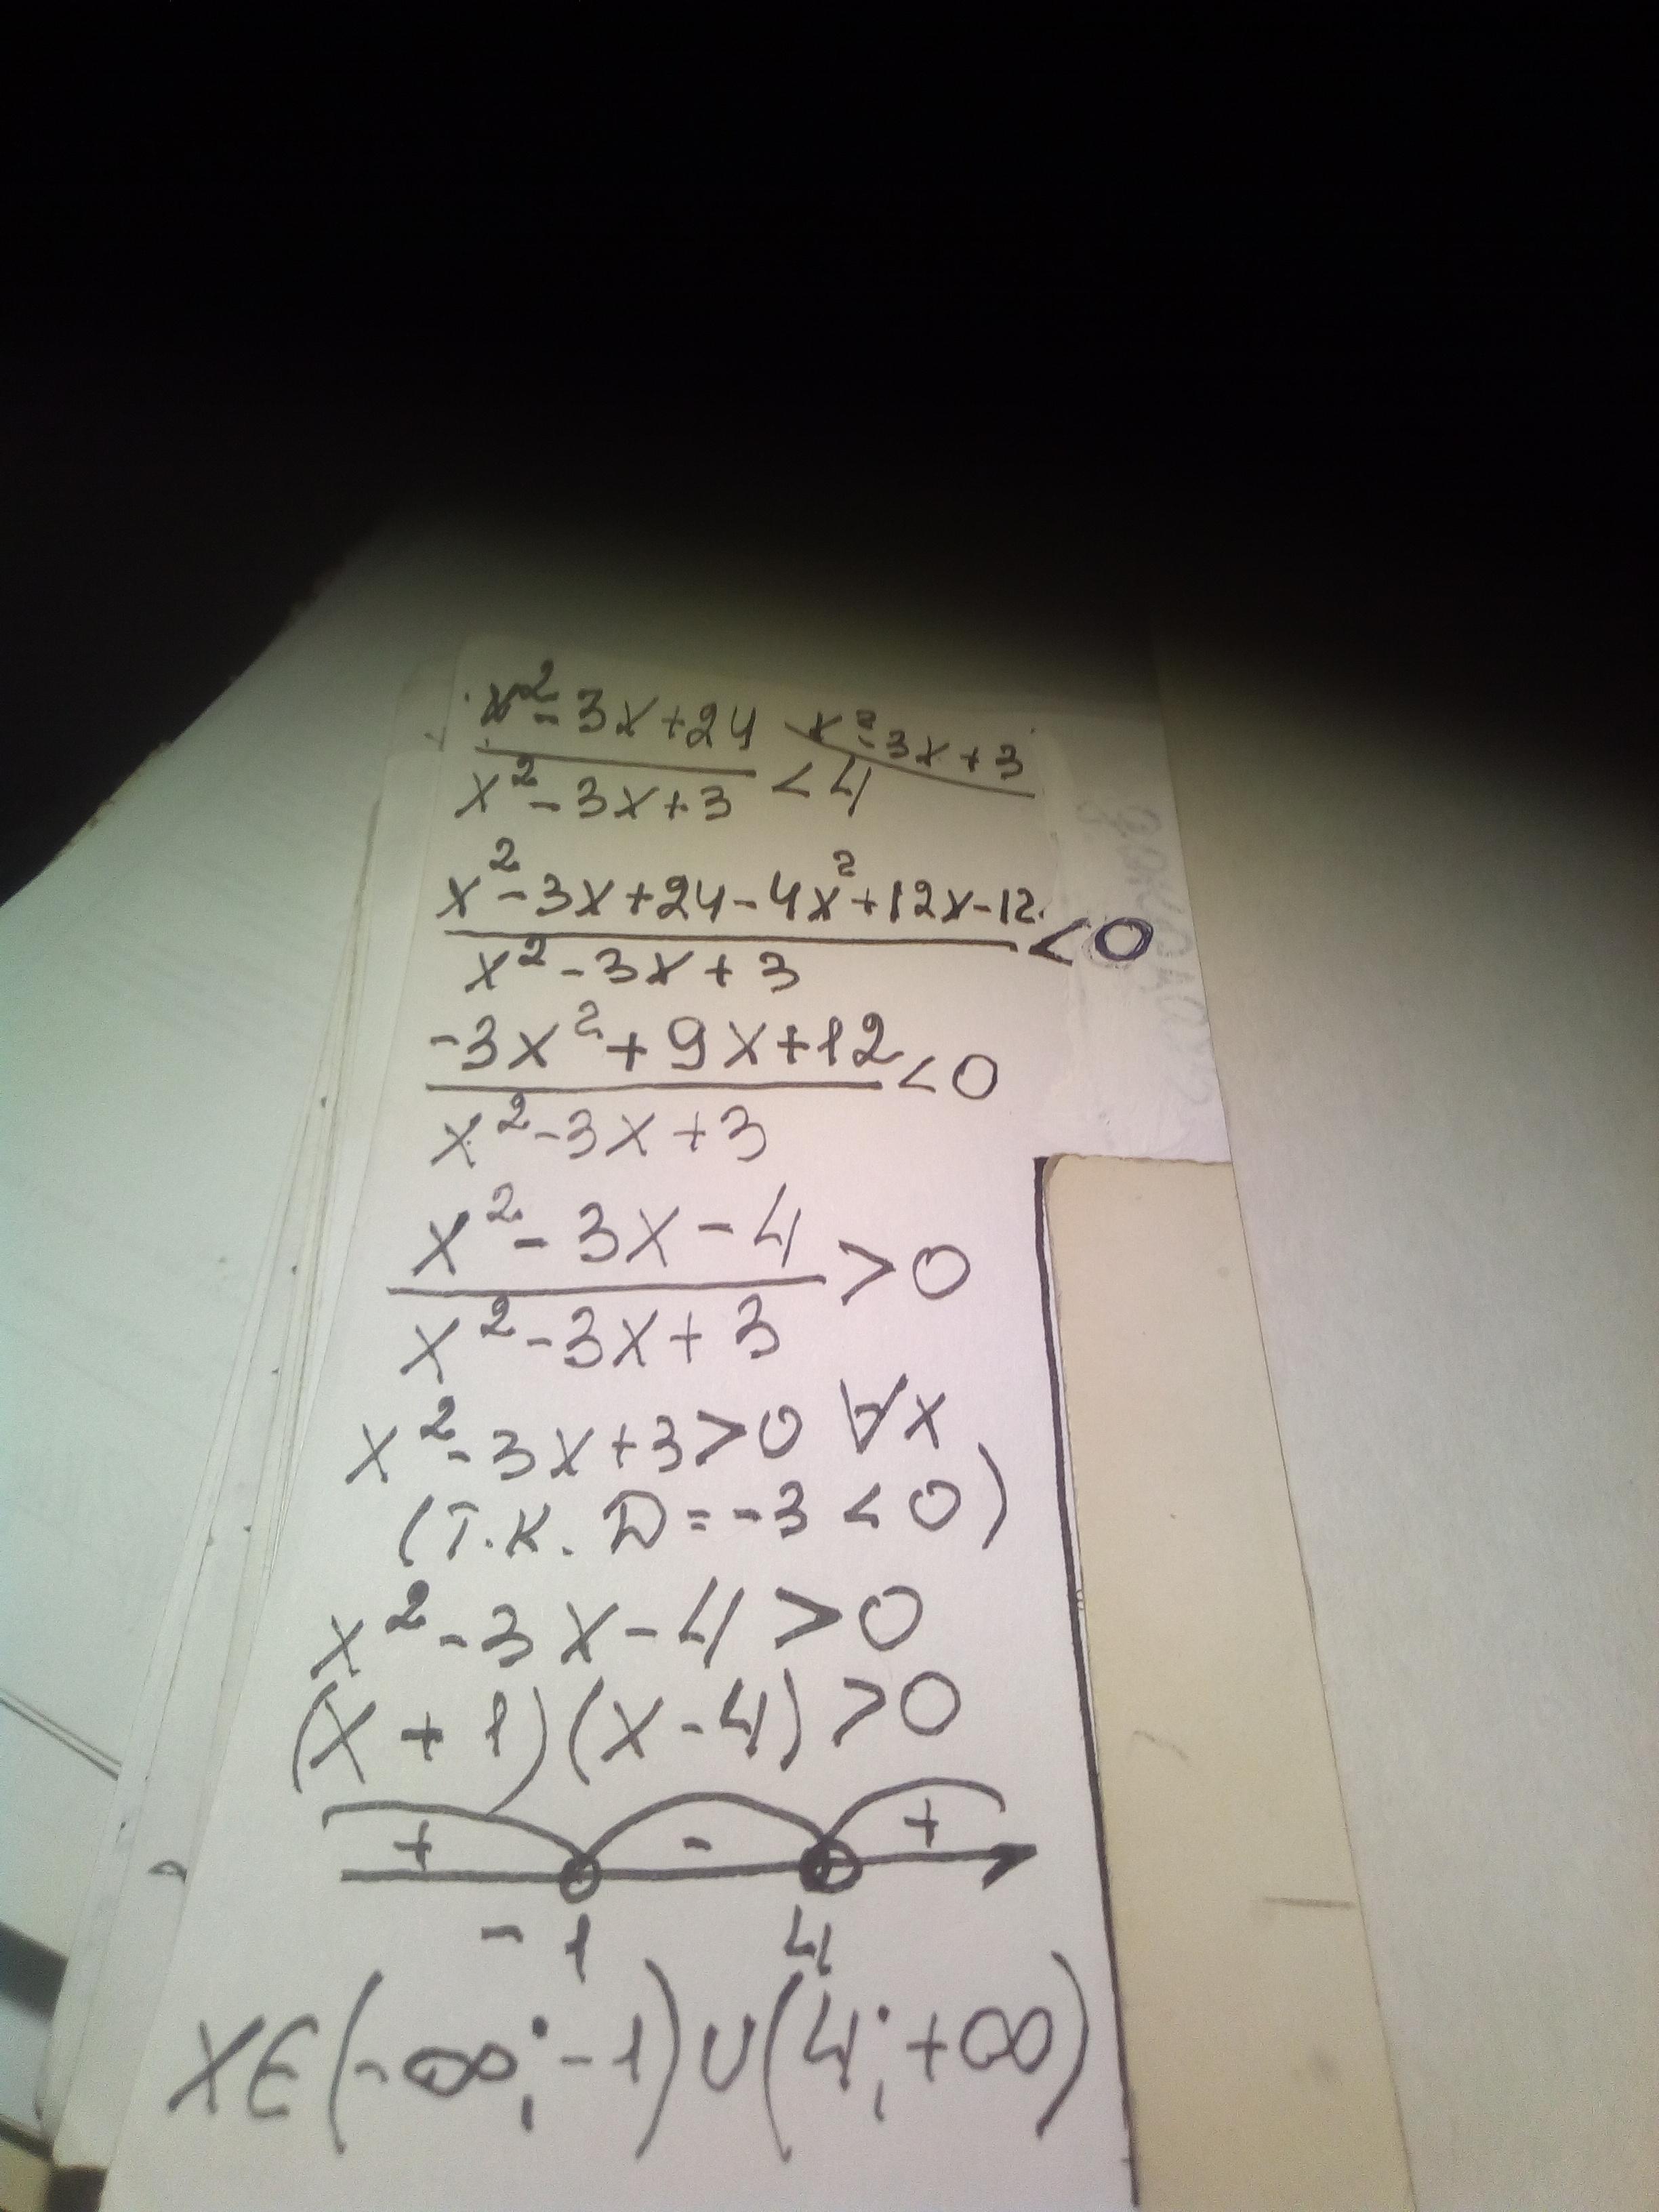 x²-3x+24 / x²-3x+3 < 4 \ x²-3x+3
x²-3x+24-4x²+12x-12 / x²-3x+3 < 0
-3x²+9x+12 / x²-3x+3 < 0
x²-3x-4 / x²-3x+3 > 0
x²-3x+3>0 ∀x
(т.к. D=-3<0)
x²-3x-4>0
(x+1)(x-4)>0
+ - +
-1 4
x∈(-∞;-1)∪(4;+∞)